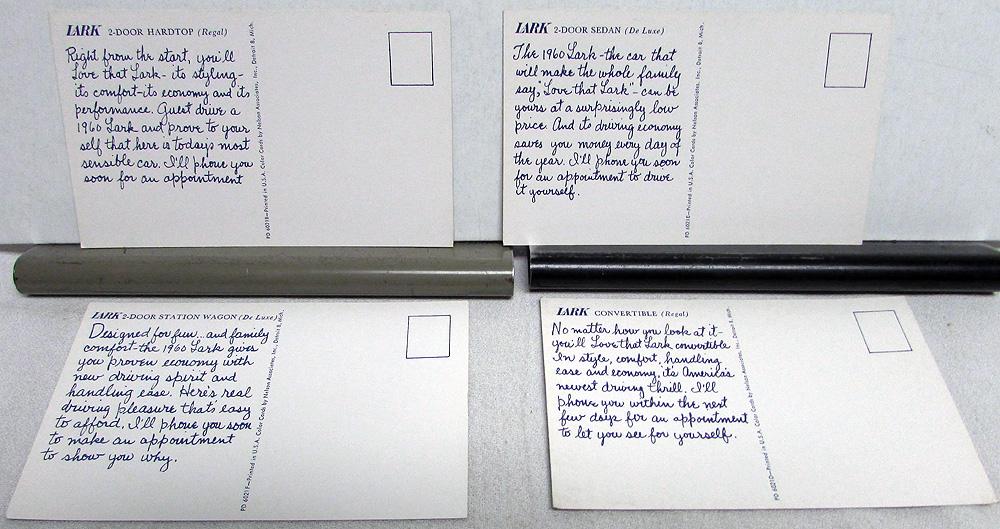 LARK 2-DOOR HARDTOP (Regal)
Right from the start, you'll
Love that Lark - its styling -
its comfort - its economy and its
performance. Guest drive a
1960 Lark and prove to your
self that here is today's most
sensible car. I'll phone you
soon for an appointment
PD 6021B—Printed in U.S.A. Color Cards by Nelson Associates, Inc., Detroit 8, Mich.
LARK 2-DOOR SEDAN (De Luxe)
The 1960 Lark - the car that
will make the whole family
say, "Love that Lark" - can be
yours at a surprisingly low
price. And its driving economy
saves you money every day of
the year. I'll phone you soon
for an appointment to drive
it yourself.
PD 6021E—Printed in U.S.A. Color Cards by Nelson Associates, Inc., Detroit 8, Mich.
LARK 2-DOOR STATION WAGON (De Luxe)
Designed for fun and family
comfort - the 1960 Lark gives
you proven economy with
new driving spirit and
handling ease. Here's real
driving pleasure that's easy
to afford. I'll phone you soon
to make an appointment
to show you why.
PD 6021F—Printed in U.S.A. Color Cards by Nelson Associates, Inc., Detroit 8, Mich.
LARK CONVERTIBLE (Regal)
No matter how you look at it -
you'll Love that Lark convertible
In style, comfort, handling
ease and economy, it's America's
newest driving thrill. I'll
phone you within the next
few days for an appointment
to let you see for yourself.
PD 6021D—Printed in U.S.A. Color Cards by Nelson Associates, Inc., Detroit 8, Mich.